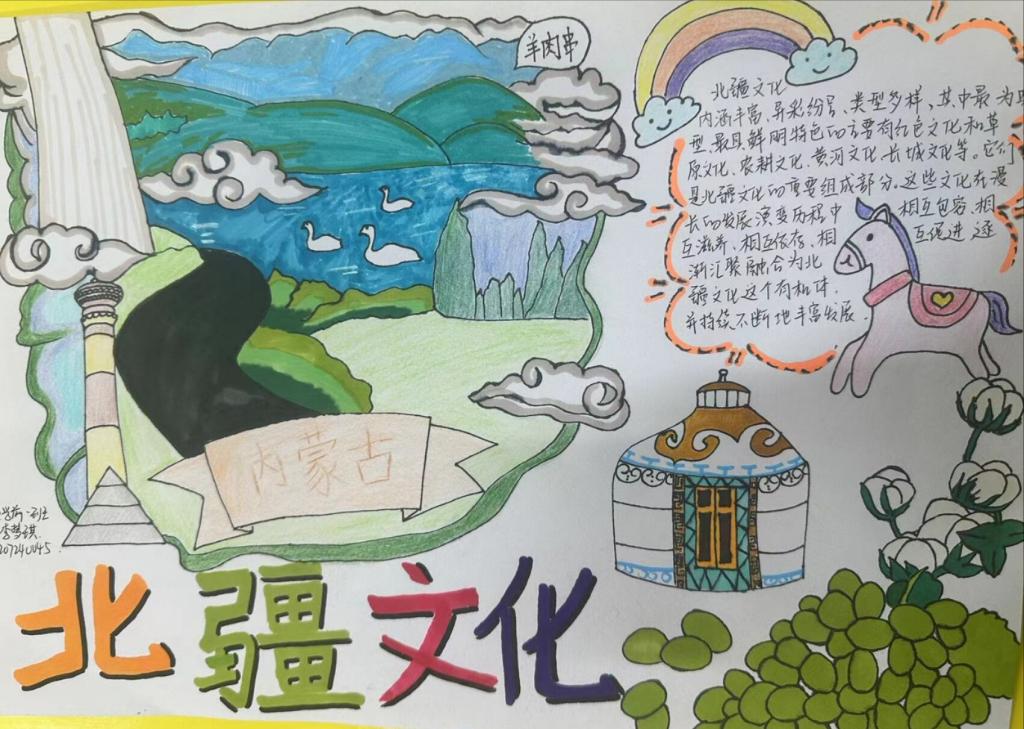 羊肉串
北疆文化
内涵丰富、异彩纷呈、类型多样、其中最为
型、最具鲜明特色的主要有红色文化和草
原文化、农耕文化、黄河文化、长城文化等。它们
是北疆文化的重要组成部分、这些文化在漫
长的发展演变历程中 相互包容、相
互滋养、相互依存、相 互促进 逐
渐汇聚融合为北
疆文化这个有机体.
并持续不断地丰富发展.
内蒙古
李梦琪.
北疆文化